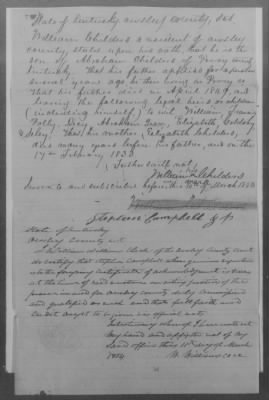 State of Kentucky Owsley County, Sct
William Childers a resident of Owsley
County, states upon his oath, that he is the
son of Abraham Childers of Perry County
Kentucky That his father applied for a pension
several years ago, he then living in Perry Co
That his father died in April 1849, and
leaving the following legal heirs
(including himself) to wit William,
Polly Gray Abraham Elizabeth
That his mother, Elizabeth Childers,
died many years before his father, and on the
17th February 1830
Further saith not,
William Childers
mark
Sworn to and subscribed before me this March 1854
Stephen Campbell J P
State of Kentucky
Owsley County Sct
I William Williams Clerk of the Owsley County Court
do certify that Stephen Campbell whose genuine signature
is to the foregoing certificate of acknowledgment is & was
at the time of an acting justice of the
peace in and for Owsley County duly commissioned
and qualified as such and that full faith and
credit ought to be given his official acts
In testimony whereof I have set
my hand and affixed seal of my
said office this 15th day of March
1854
W. Williams COCC